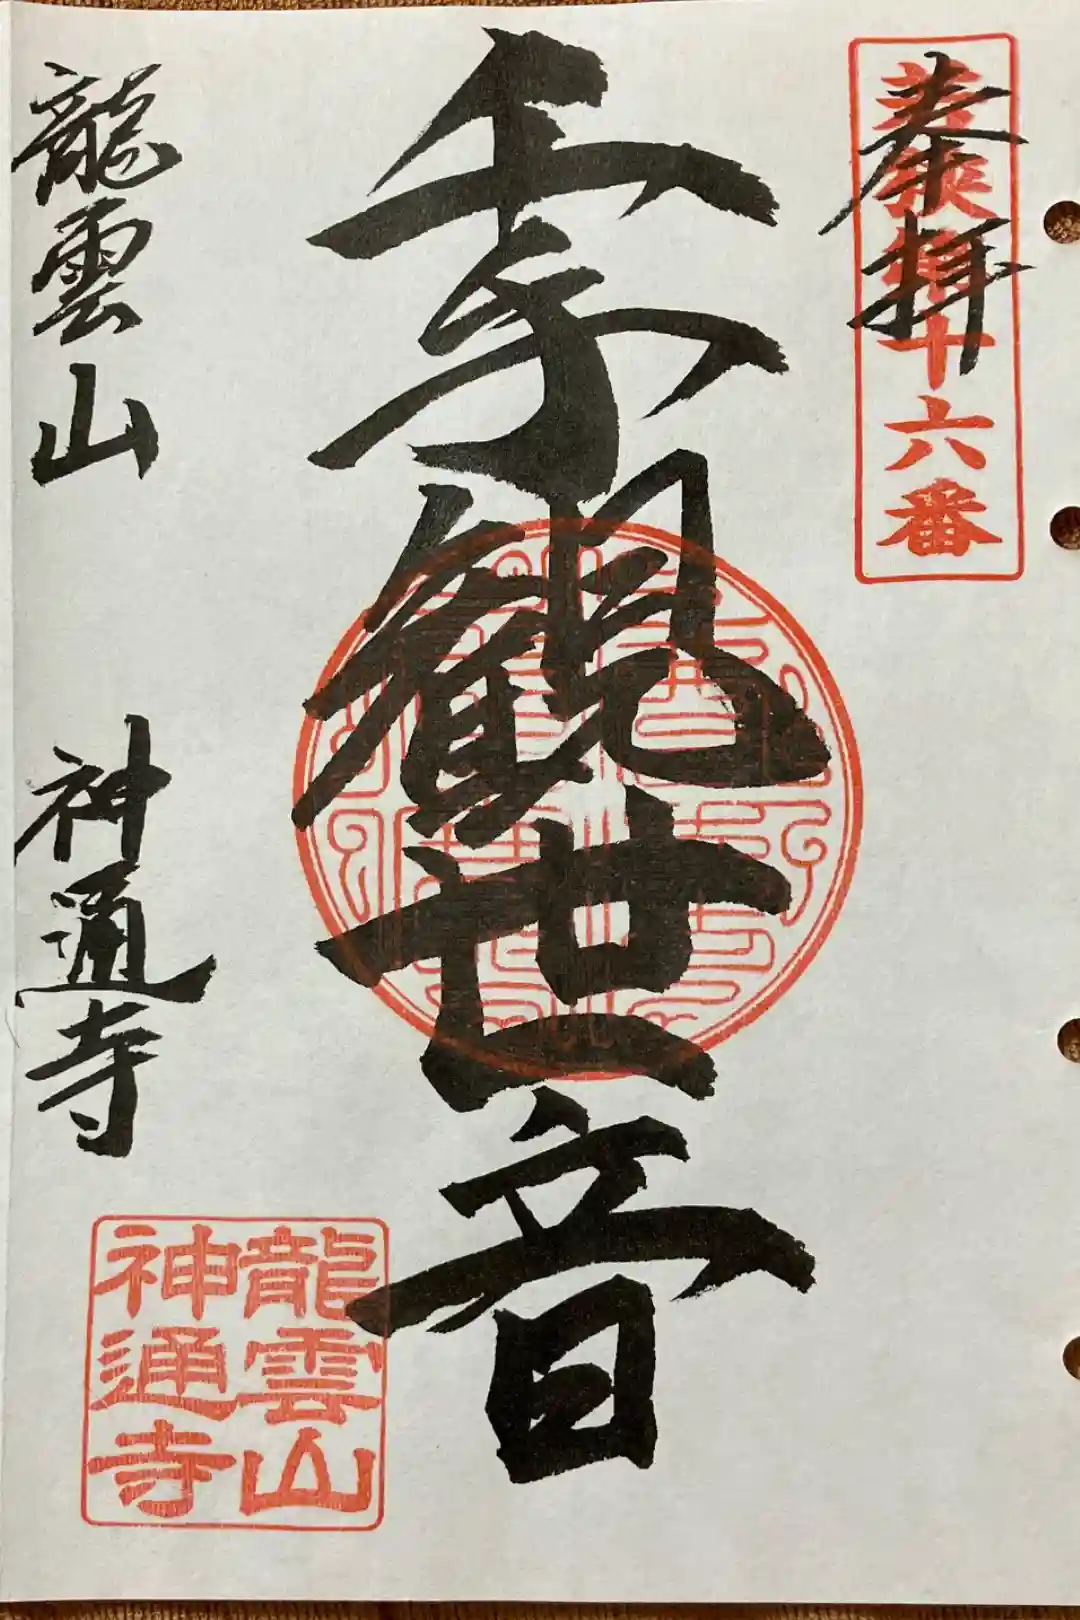 奉拝
第十六番
千手観世音
龍雲山 神通寺
龍雲山
神通寺